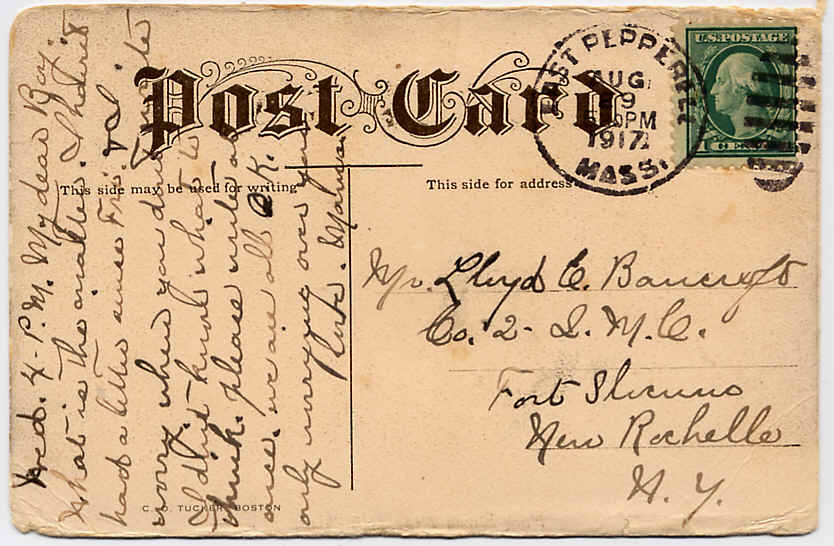 Post Card
This side may be used for writing
This side for address
EAST PEPPERELL
AUG
9
PM
1917
MASS.
U.S. POSTAGE
1 CENT
Wed. 4 - P.M. My dear Boy.
What is the matter. I
had a letter since Fri. & I
worry when you dont write
I dont know what to
think. please write at
once. we are all O.K.
only worrying over you
Love. Mama.
Mr. Lloyd C. Bancroft
Co. 2 - I. M. C.
Fort Slocum
New Rochelle
N. Y.
C. D. TUCKER, BOSTON